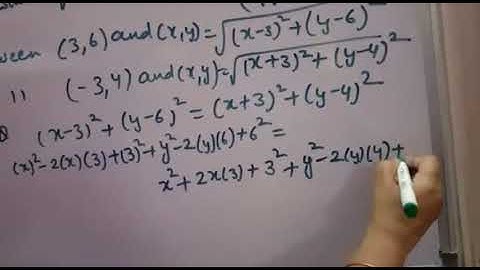 ween (3,6) and (x,y) = √(x-3)² + (y-6)
11 (-3,4) and (x,y) = √(x+3)² + (y-4)²
(x-3)² + (y-6)² = (x+3)² + (y-4)²
(x)² - 2(x)(3) + (3)² + y² - 2(y)(6) + 6² =
x² + 2x(3) + 3² + y² - 2(y)(4) +